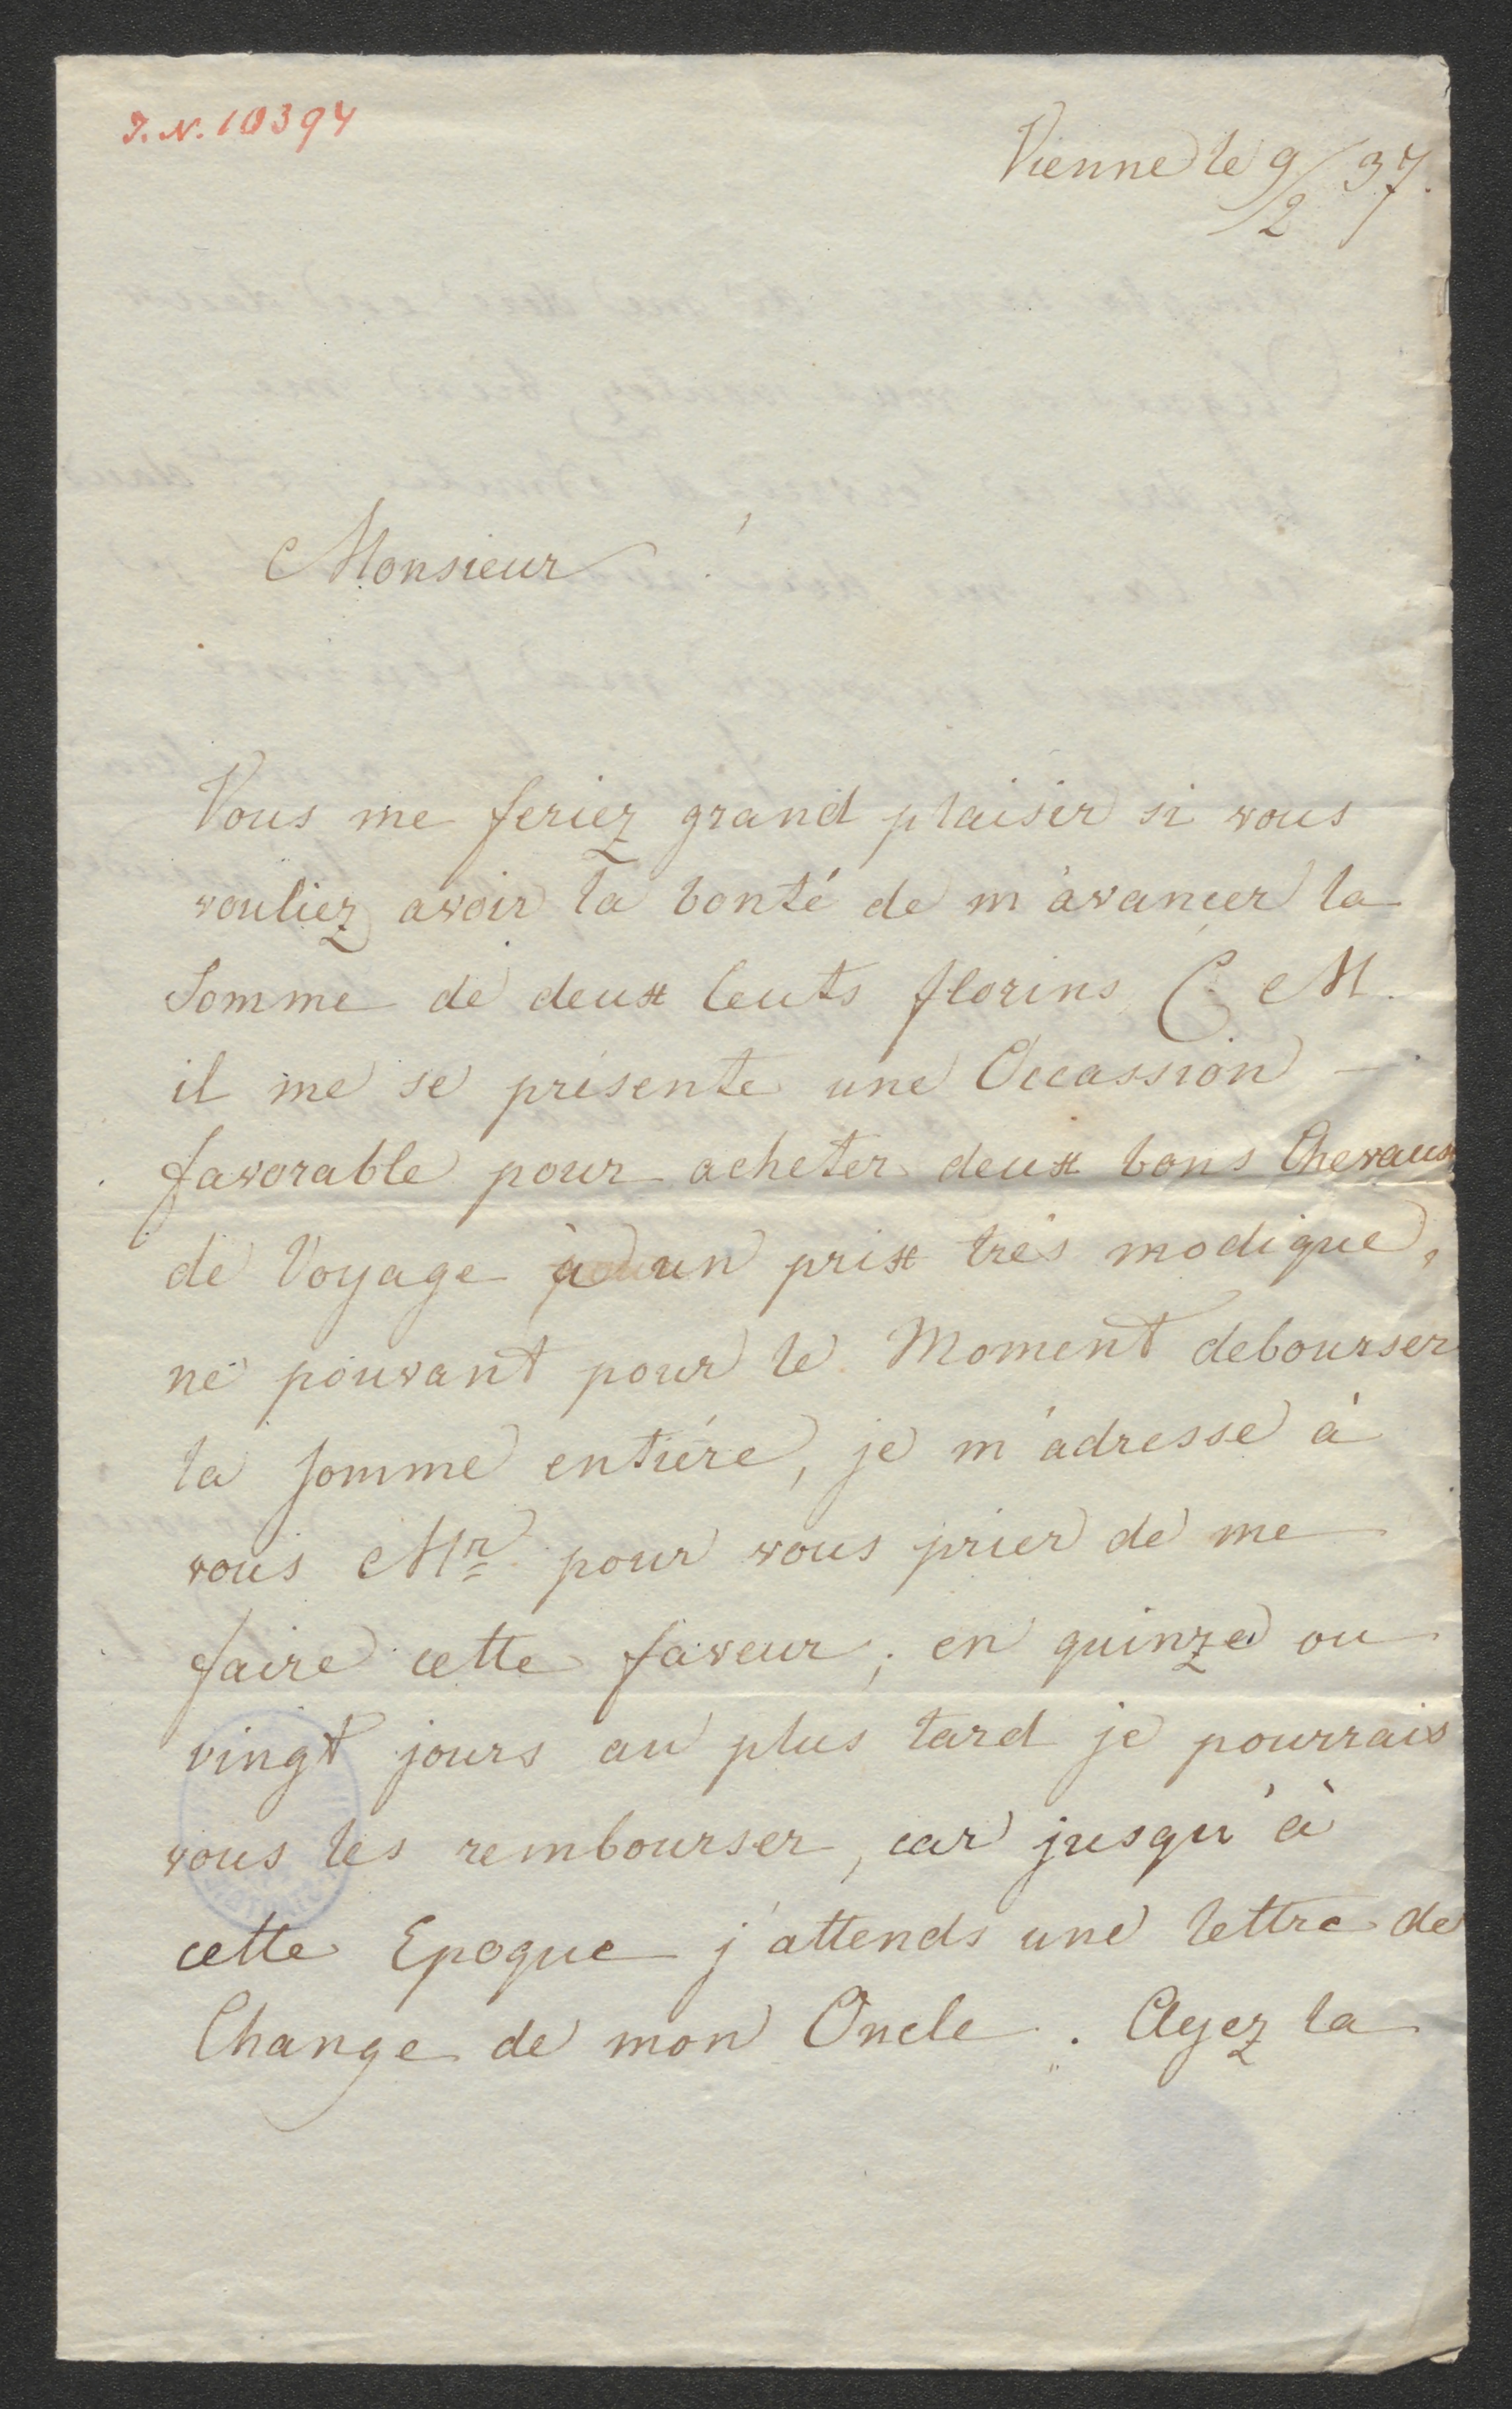 I. N. 10394
Vienne le 9/2 37.
Monsieur
Vous me feriez grand plaisir si vous
vouliez avoir la bonté de m'avancer la
Somme de deux Cents florins C. M.
il me se présente une Occassion –
favorable pour acheter deux bons Chevaux
de Voyage à un prix très modique,
ne pouvant pour le Moment debourser
la somme entiére, je m'adresse à
vous Mr pour vous prier de me
faire cette faveur; en quinze ou
vingt jours au plus tard je pourrais
vous les rembourser, car jusqu'à
cette Epoque j'attends une lettre de
Change de mon Oncle. Ayez la